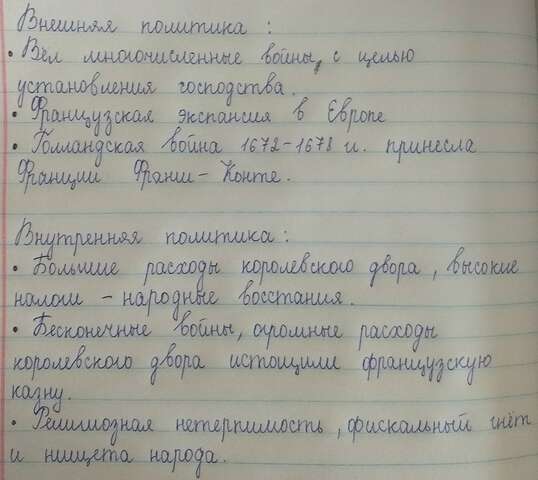 Внешняя политика :
• Вёл многочисленные войны, с целью
установления господства.
• Французская экспансия в Европе
• Голландская война 1672-1678 г. принесла
Франции Франш-Конте.
Внутренняя политика :
• Большие расходы королевского двора, высокие
налоги - народные восстания.
• Бесконечные войны, огромные расходы
королевского двора истощили французскую
казну.
• Религиозная нетерпимость, фискальный гнёт
и нищета народа.